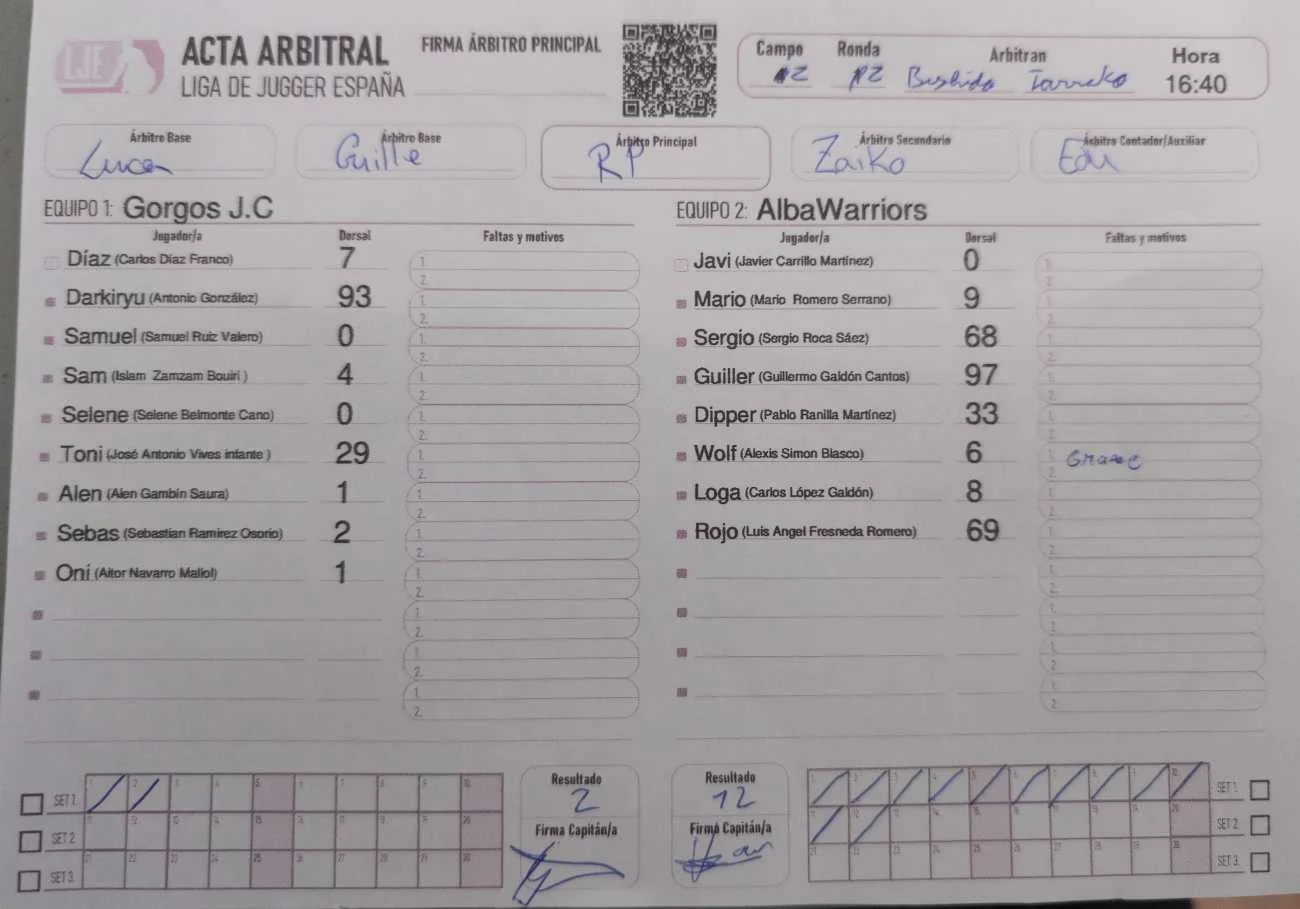 LJE
ACTA ARBITRAL
LIGA DE JUGGER ESPAÑA
FIRMA ÁRBITRO PRINCIPAL
Campo Ronda Arbitran Hora
2 2 Bushido Tarrako 16:40
Árbitro Base Árbitro Base Árbitro Principal Árbitro Secundario Árbitro Contador/Auxiliar
Lucen Guille RP Zaiko Edu
EQUIPO 1: Gorgos J.C
Jugador/a Dorsal Faltas y motivos
Díaz (Carlos Díaz Franco) 7 1. 2.
Darkiryu (Antonio González) 93 1. 2.
Samuel (Samuel Ruiz Valero) 0 1. 2.
Sam (Islam Zamzam Bouiri ) 4 1. 2.
Selene (Selene Belmonte Cano) 0 1. 2.
Toni (José Antonio Vives infante ) 29 1. 2.
Alen (Alen Gambín Saura) 1 1. 2.
Sebas (Sebastian Ramirez Osorio) 2 1. 2.
Oni (Aitor Navarro Mallol) 1 1. 2.
1. 2.
1. 2.
1. 2.
EQUIPO 2: AlbaWarriors
Jugador/a Dorsal Faltas y motivos
Javi (Javier Carrillo Martínez) 0 1. 2.
Mario (Mario Romero Serrano) 9 1. 2.
Sergio (Sergio Roca Sáez) 68 1. 2.
Guiller (Guillermo Galdón Cantos) 97 1. 2.
Dipper (Pablo Ranilla Martínez) 33 1. 2.
Wolf (Alexis Simon Blasco) 6 1. Grave 2.
Loga (Carlos López Galdón) 8 1. 2.
Rojo (Luis Angel Fresneda Romero) 69 1. 2.
1. 2.
1. 2.
1. 2.
1. 2.
SET 1. 1 2 3 4 5 6 7 8 9 10
SET 2. 11 12 13 14 15 16 17 18 19 20
SET 3. 21 22 23 24 25 26 27 28 29 30
Resultado
2
Firma Capitán/a
Resultado
12
Firma Capitán/a
1 2 3 4 5 6 7 8 9 10 SET 1.
11 12 13 14 15 16 17 18 19 20 SET 2.
21 22 23 24 25 26 27 28 29 30 SET 3.